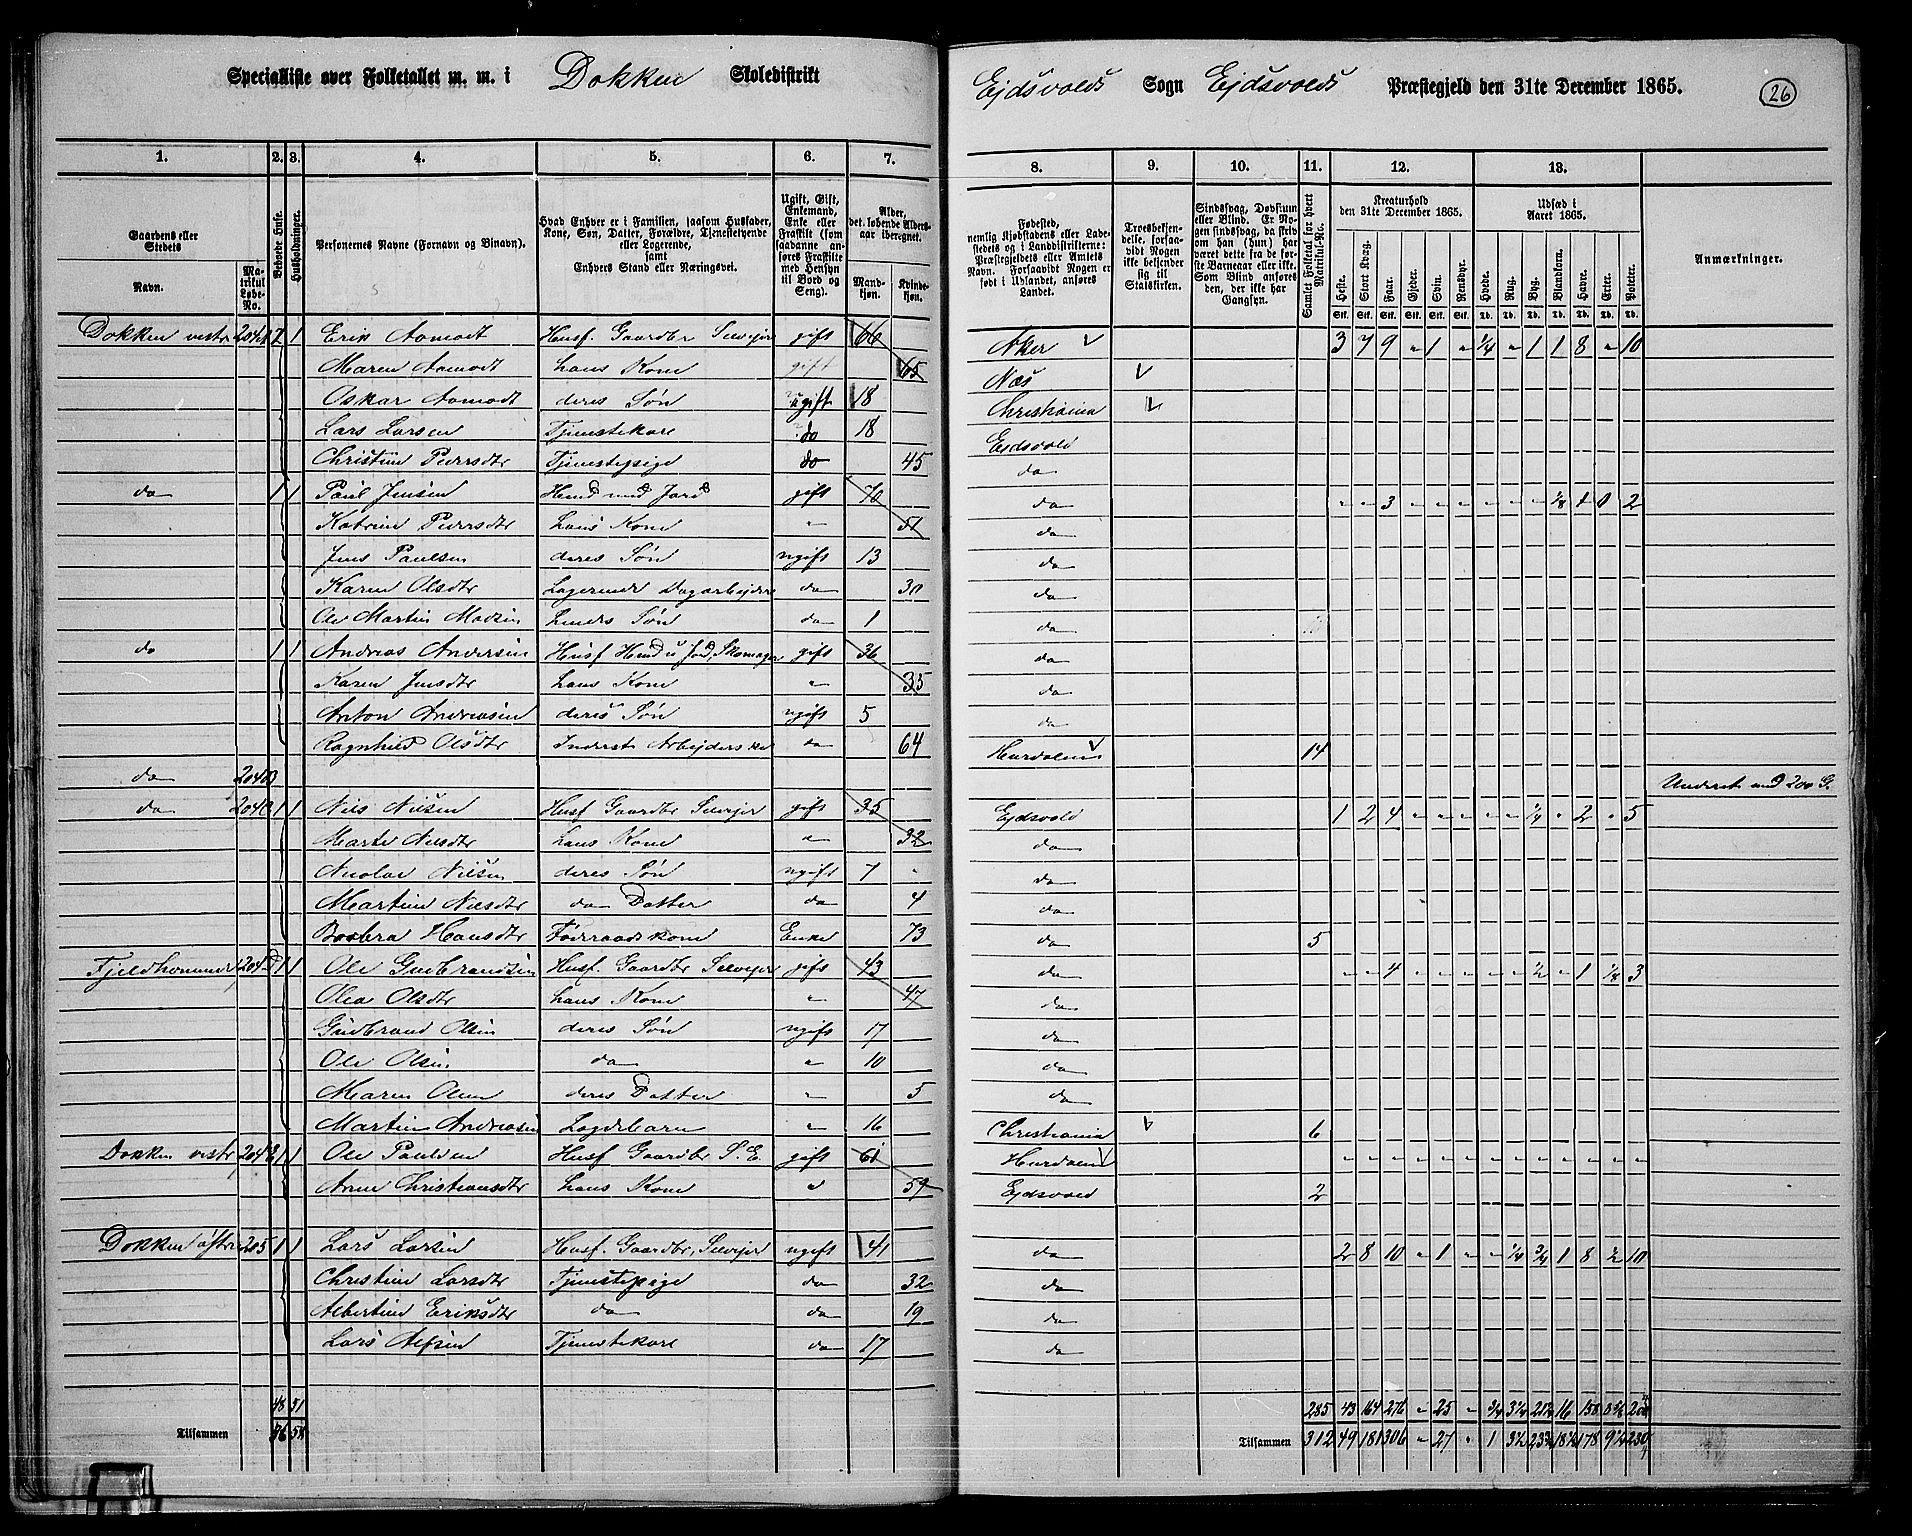 Specialliste over Folketallet m. m. i Dokken Skoledistrikt Ejdsvolds Sogn Ejdsvolds Præstegjeld den 31te December 1865. 26
1. 2. 3. 4. 5. 6. 7. 8. 9. 10. 11. 12. 13.
Gaardens eller Stedets
Navn.
Matrikul Løbe-No.
Beboede Huse.
Husholdninger.
Personernes Navne (Fornavn og Binavn).
Hvad Enhver er i Familien, saasom Husfader, Kone, Søn, Datter, Forældre, Tjenestetyende eller Logerende, samt Enhvers Stand eller Næringsvei.
Ugift, Gift, Enkemand, Enke eller Fraskilt (som saadanne anføres Fraskilte med Hensyn til Bord og Seng).
Alder, det løbende Alders-aar iberegnet.
Mandkjøn.
Kvindekjøn.
Fødested, nemlig Kjøbstadens eller Ladestedets og i Landdistrikterne: Præstegjeldets eller Amtets Navn. Forsaavidt Nogen er født i Udlandet, anføres Landet.
Troesbekjendelse, forsaavidt Nogen ikke bekjender sig til Statskirken.
Sindssvag, Døvstum eller Blind. Er Nogen sindssvag, da skriv om han (hun) har været dette fra de første Barneaar eller ikke. Som Blind anføres den, der ikke har Gangsyn.
Samlet Folketal for hvert Matrikul-No.
Kreaturhold den 31te December 1865.
Heste. Stort Kvæg. Faar. Gjeder. Svin. Rensdyr.
Udsæd i Aaret 1865.
Hvede. Rug. Byg. Blandkorn. Havre. Erter. Poteter.
Anmærkninger.
Dokken vestre 204 1 Erik Aamodt Husf. Gaardbr Selvejer gift 66 Aker 3 7 9 " 1 " 1/4 " 1 1 8 " 10
Maren Aamodt hans Kone gift 65 Næs
Oskar Aamodt deres Søn ugift 18 Christiania
Lars Larsen Tjenestekarl do 18 Ejdsvold
Christine Pedersdtr Tjenestepige do 45 do
do 1 1 Paul Jensen Husmd med Jord gift 70 do " " 3 " " " " " " 1/8 1 2
Katrine Pedersdtr hans Kone " 51 do
Jens Paulsen deres Søn ugift 13 do
Karen Olsdtr Logerende Dagarbejderske do 30 do
Ole Martin Madsen hendes Søn do 1 do
do 1 1 Andreas Andersen Husf Husmd u Jord, Skomager gift 36 do
Karen Jensdtr hans Kone " 35 do
Anton Andreasen deres Søn ugift 5 do
Ragnhild Olsdtr Inderst Arbejderske do 64 Hurdalen 14
do 204B Underet med 200 G.
do 204C 1 1 Nils Nilsen Husf Gaardbr Selvejer gift 35 Ejdsvold 1 2 4 " " " " " 1/4 " 2 " 5
Marte Nilsdtr hans Kone " 32 do
Nicolai Nilsen deres Søn ugift 7 " do
Martine Nilsdtr do Datter do 4 do
Barbra Hansdtr Føderaadskone Enke 73 do 5
Fjeldhammer 204D 1 1 Ole Gudbrandsen Husf. Gaardbr Selvejer gift 43 do " " 4 " " " " " 1/2 " 1 1/8 3
Olea Olsdtr hans Kone " 47 do
Gudbrand Olsen deres Søn ugift 17 do
Ole Olsen do " 10 do
Maren Olsen deres Datter " 5 do
Martin Andreasen Lægdebarn " 16 Christiania 6
Dokken vestre 204E 1 1 Ole Paulsen Husf Gaardbr S. E. gift 61 Hurdalen " " " " " " " " " " " " "
Anne Christiansdtr hans Kone " 59 Ejdsvold 2
Dokken østre 205 1 1 Lars Larsen Husf. Gaardbr, Selvejer ugift 41 do 2 8 10 " 1 " " 1/4 3/4 1 8 1/2 10
Christine Larsdtr Tjenestepige do 32 do
Albertine Eriksdtr do do 19 do
Lars Alfsen Tjenestekarl do 17 do
48 51 285 43 164 276 " 25 " 3/4 16 158 200
Tilsammen 56 58 Tilsammen 312 49 181 306 " 27 " 1 178 230